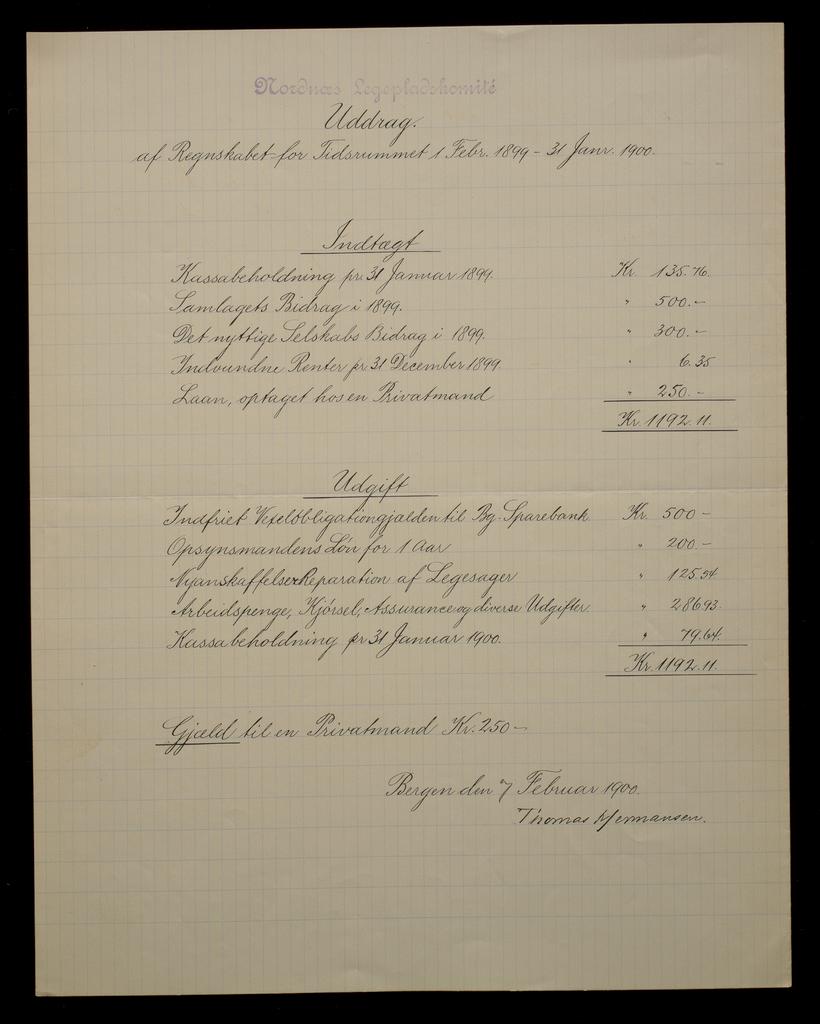 Nordnæs Legepladskomité
Uddrag.
af Regnskabet for Tidsrummet 1 Febr. 1899 - 31 Janr. 1900.
Indtægt
Kassabeholdning pr. 31 Januar 1899. Kr. 135.76.
Samlagets Bidrag i 1899. " 500.-
Det nyttige Selskabs Bidrag i 1899. " 300.-
Indvundne Renter pr. 31 December 1899 " 6.35
Laan, optaget hos en Privatmand " 250.-
Kr. 1192.11.
Udgift
Indfriet Vexelobligationgjælden til Bg. Sparebank Kr. 500-
Opsynsmandens Løn for 1 Aar " 200.-
Nyanskaffelser Reparation af Legesager " 125.54
Arbeidspenge, Kjørsel, Assurance og diverse Udgifter " 286.93.
Kassabeholdning pr 31 Januar 1900. " 79.64.
Kr. 1192.11.
Gjæld til en Privatmand Kr. 250-
Bergen den 7 Februar 1900.
Thomas Hermansen.